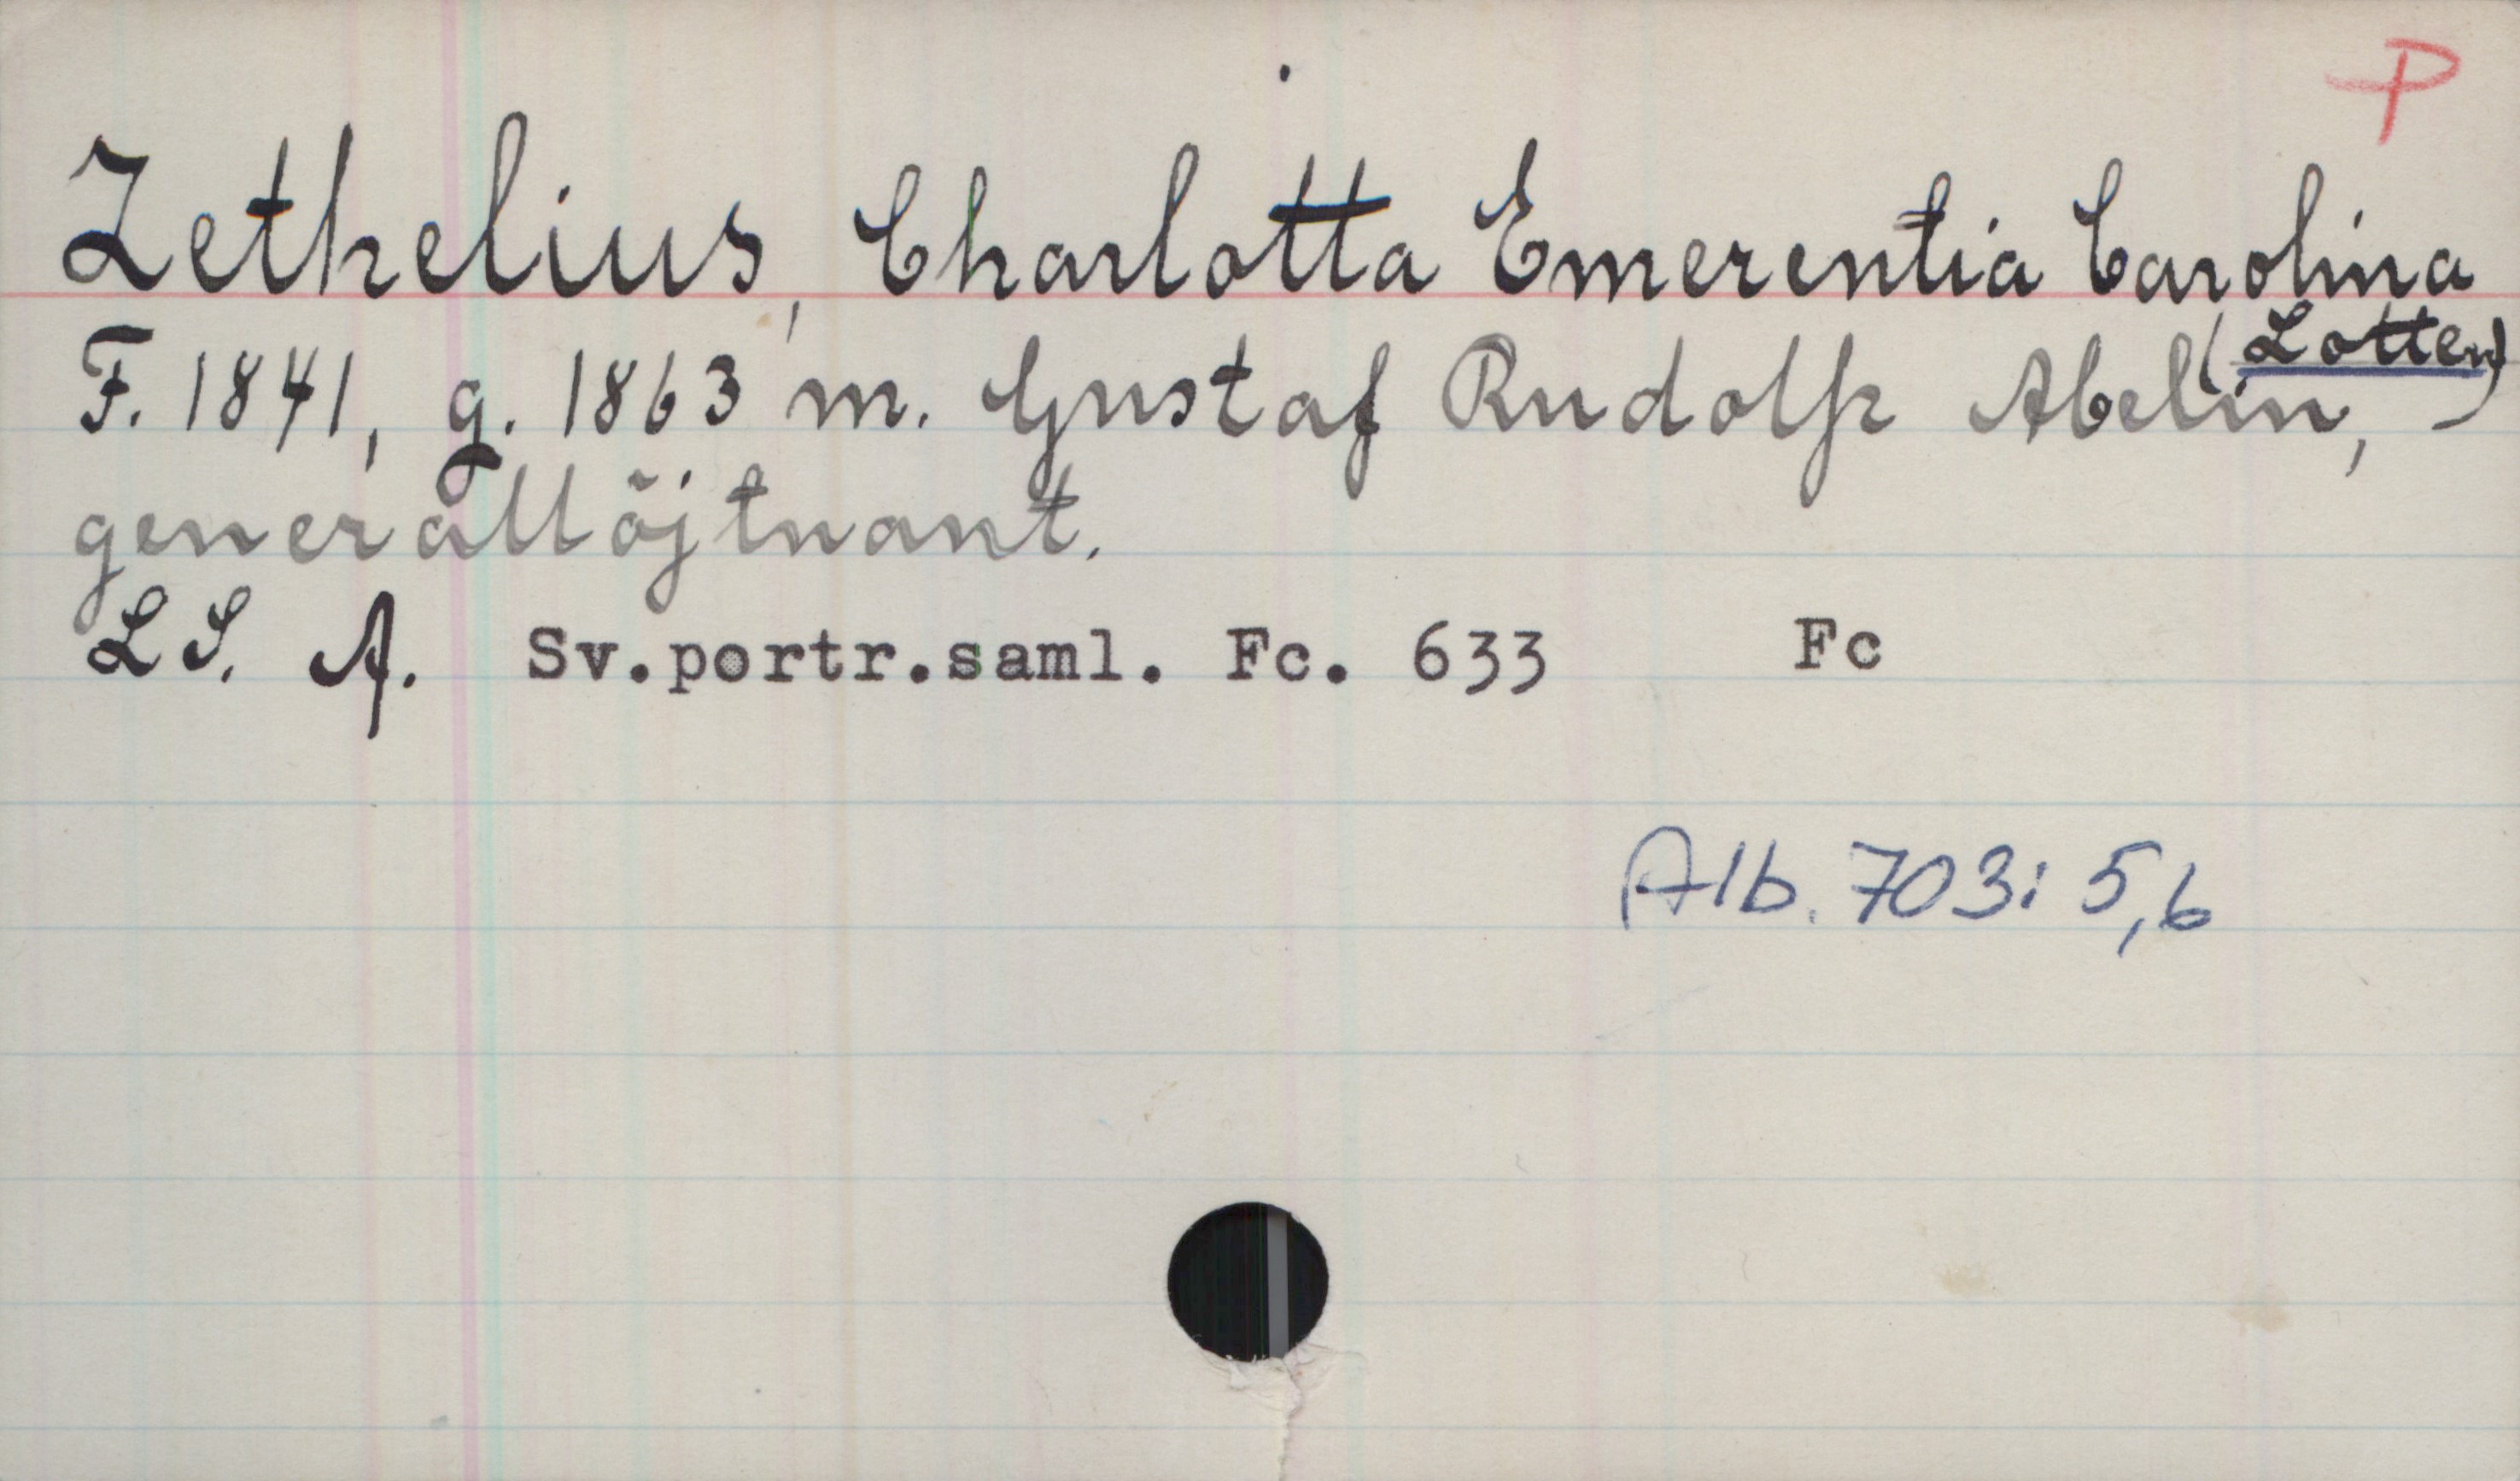 P
Zethelius, Charlotta Emerentia Carolina
(Lotten)
F. 1841, g. 1863 m. Gustaf Rudolf Abelin,
generallöjtnant.
LS. A. Sv.portr.saml. Fc. 633 Fc
Alb. 703: 5,6